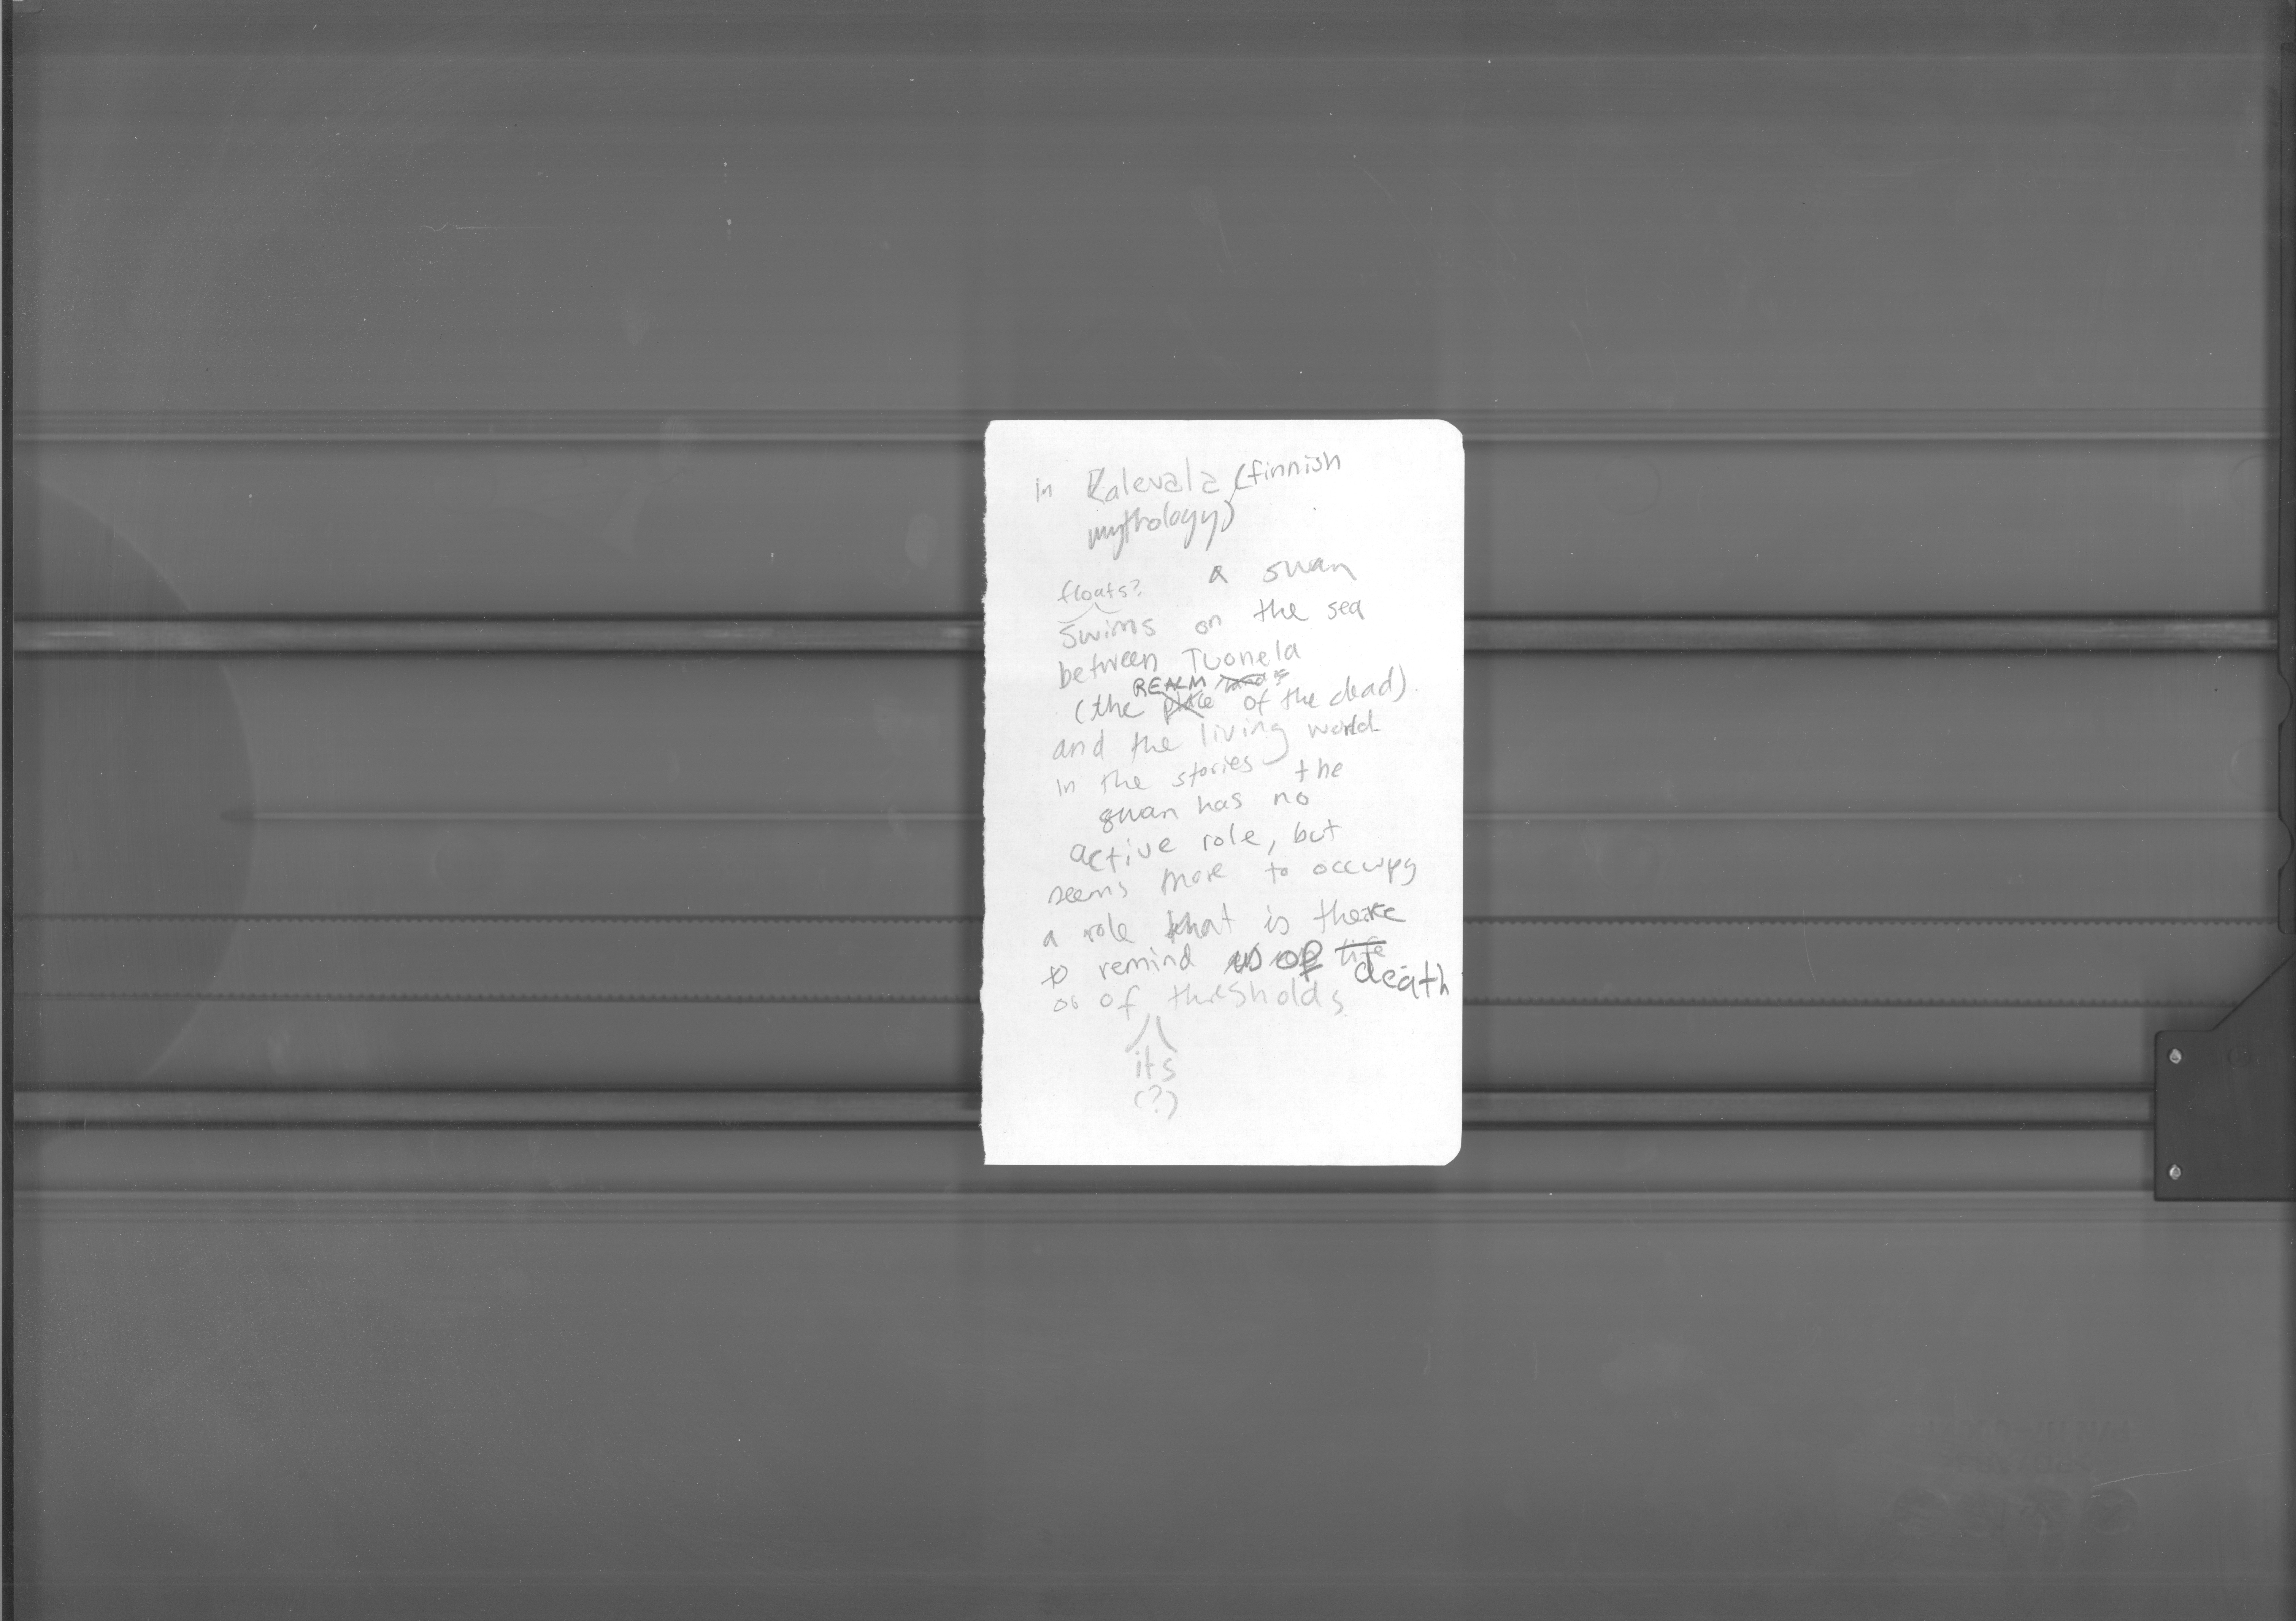 in Kalevala (finnish
mythology)
a swan
floats?
swims on the sea
between Tuonela
REALM
(the place of the dead)
and the living world
in the stories the
swan has no
active role, but
seems more to occupy
a role that is there
to remind us of life
death
of thresholds
its
(?)